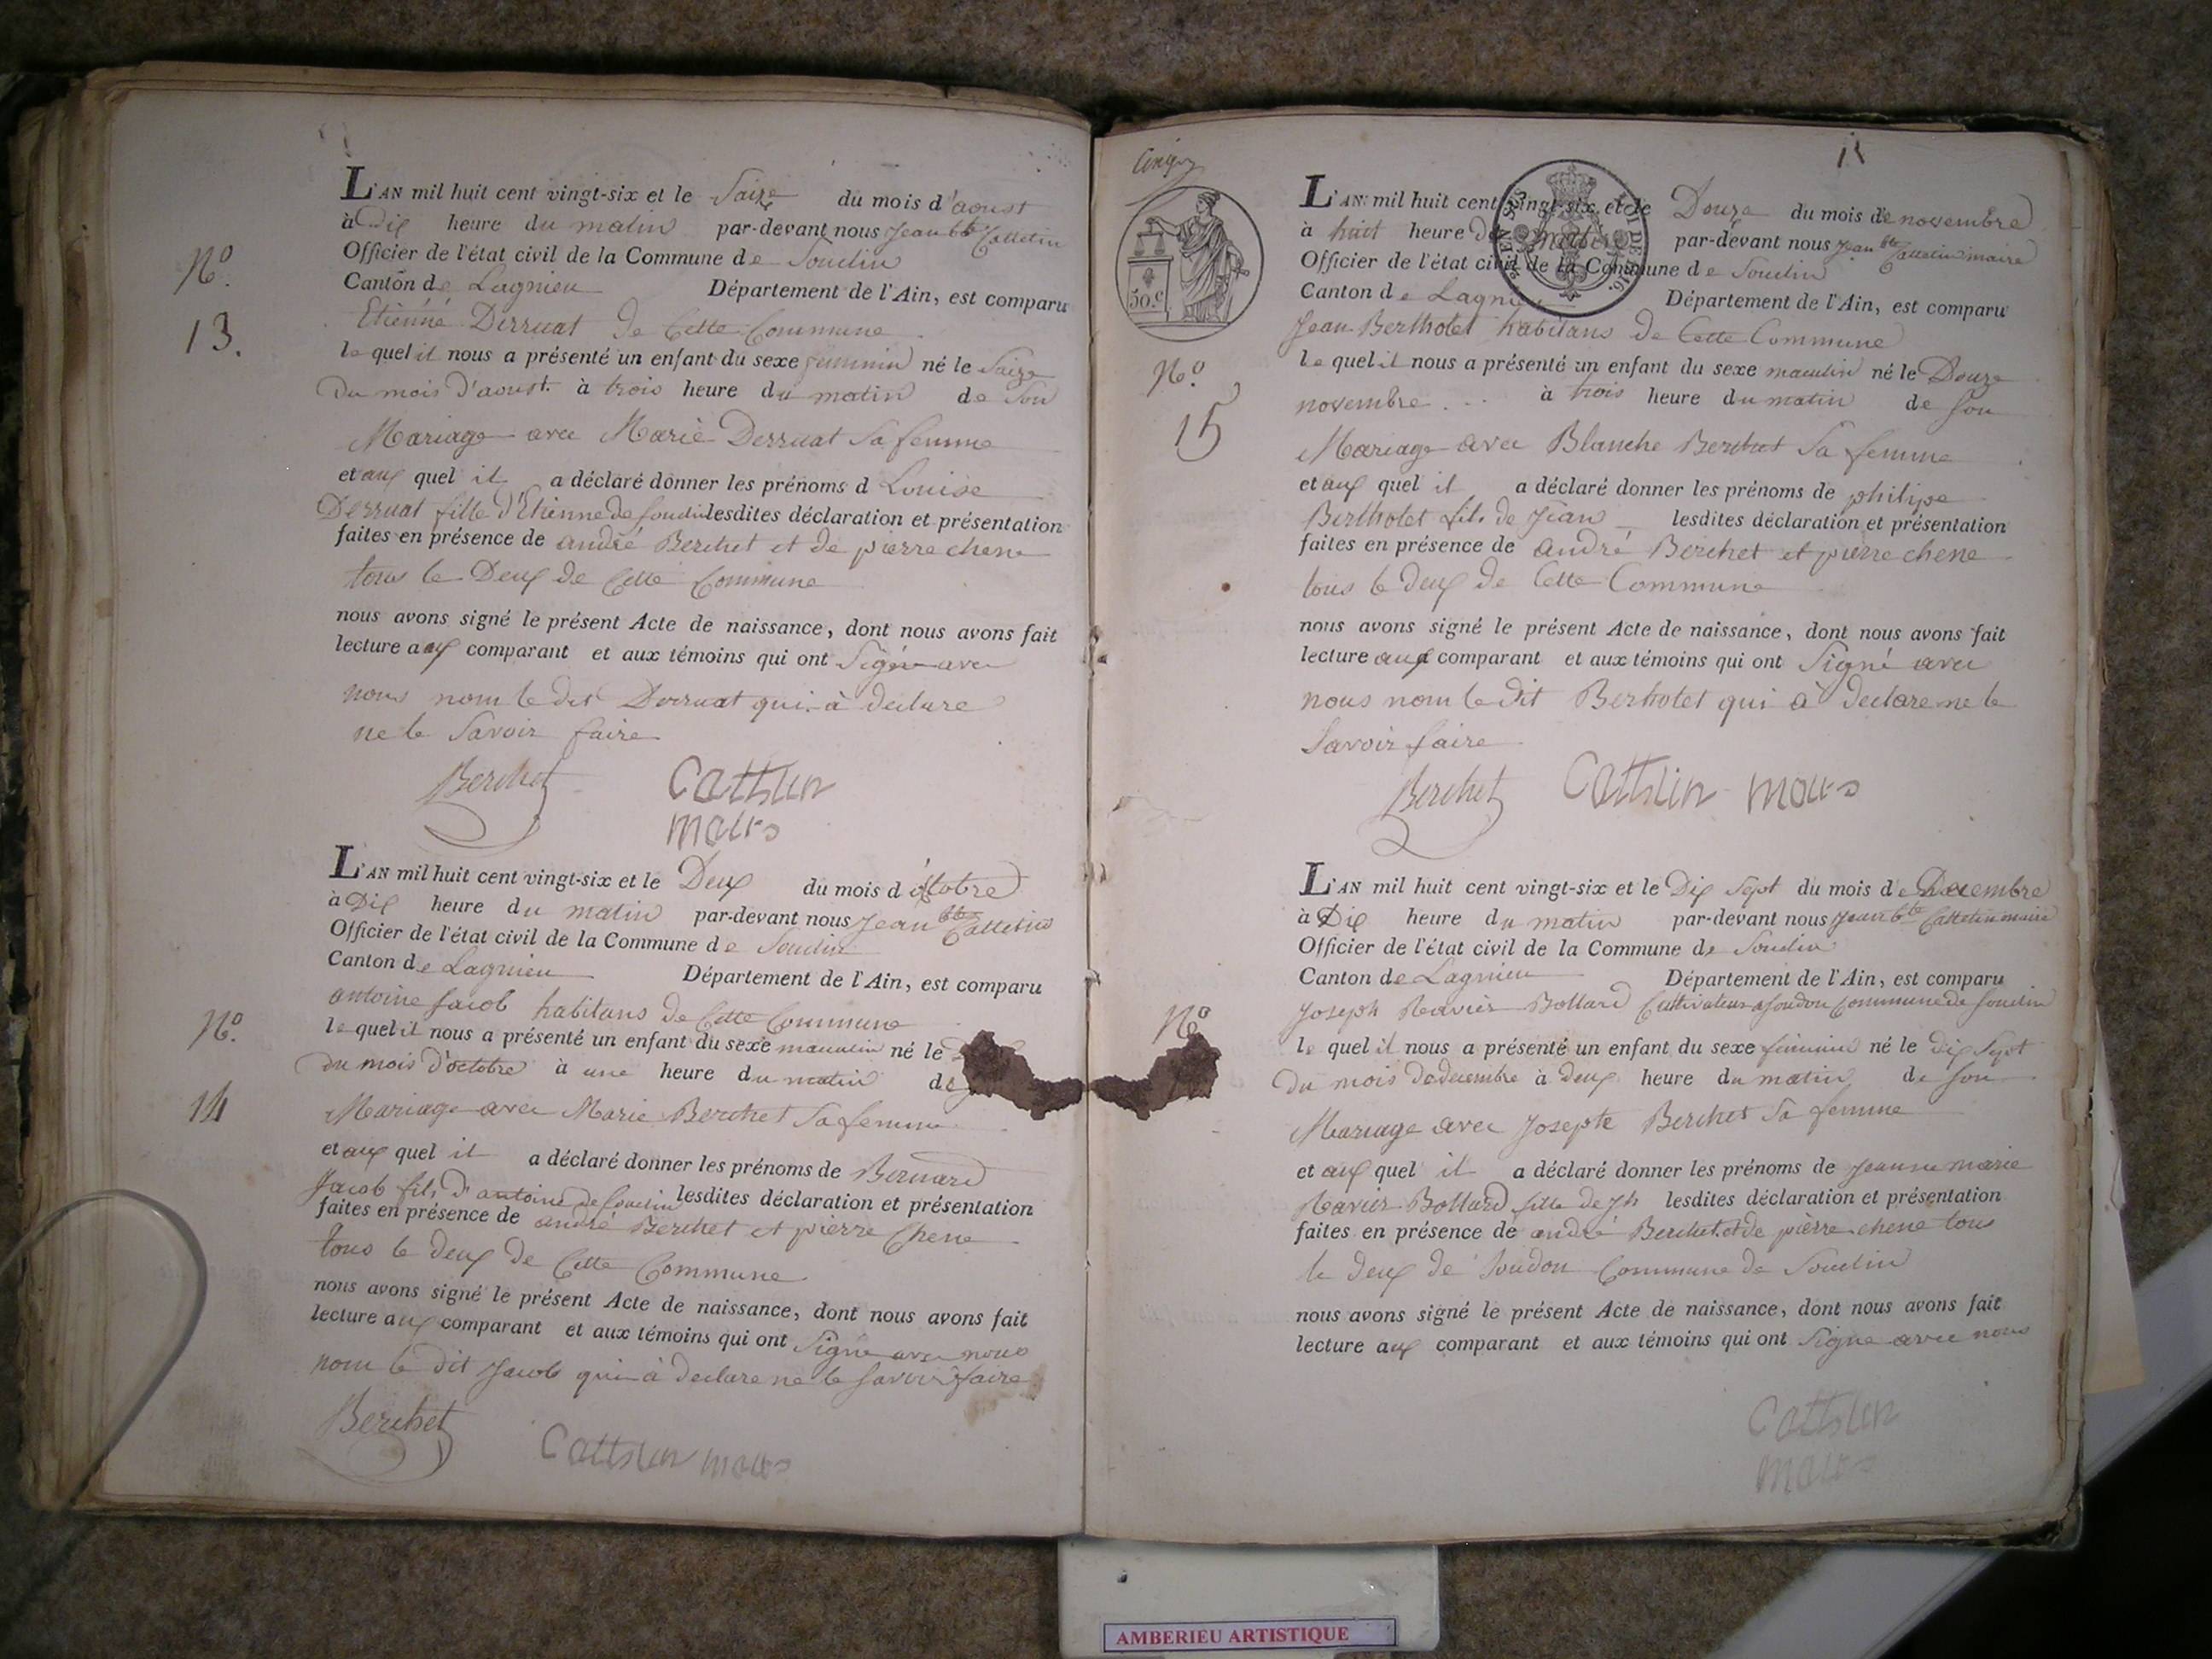 N.º
13.
L'AN mil huit cent vingt-six et le Saize du mois d'aoust
à Dix heure du matin par-devant nous Jean bte Cattelin
Officier de l'état civil de la Commune de Soudin
Canton de Lagnieu Département de l'Ain, est comparu
Etiénné Derruat de Cette Commune
le quel il nous a présenté un enfant du sexe feminin né le Saize
du mois d'aoust à trois heure du matin de Son
Mariage avec Marie Derruat Sa femme
et aux quel il a déclaré donner les prénoms d Louise
Derruat fille d'Etienne de Soudin lesdites déclaration et présentation
faites en présence de andré Berchet et de pierre chene
tous le Deux de Cette Commune
nous avons signé le présent Acte de naissance, dont nous avons fait
lecture aux comparant et aux témoins qui ont Signé avec
nous nom le dit Derruat qui à declare
ne le Savoir faire
Berchet Cattelin
maire
N.º
14
L'AN mil huit cent vingt-six et le Deux du mois d'octobre
à Dix heure du matin par-devant nous Jean bte Cattelin
Officier de l'état civil de la Commune de Soudin
Canton de Lagnieu Département de l'Ain, est comparu
antoine Jacob habitans de Cette Commune
le quel il nous a présenté un enfant du sexe masculin né le
du mois d'octobre à une heure du matin de
Mariage avec Marie Berchet Sa femme
et aux quel il a déclaré donner les prénoms de Bernard
Jacob fils d'antoine de Soudin lesdites déclaration et présentation
faites en présence de andré Berchet et pierre Chene
tous le deux de Cette Commune
nous avons signé le présent Acte de naissance, dont nous avons fait
lecture aux comparant et aux témoins qui ont Signé avec nous
nom le dit Jacob qui à declare ne le Savoir faire
Berchet Cattelin maire
15
50.c
N.º
15
L'AN mil huit cent vingt-six et le Douze du mois de novembre
à huit heure du matin par-devant nous Jean bte Cattelin maire
Officier de l'état civil de la Commune de Soudin
Canton de Lagnieu Département de l'Ain, est comparu
Jean Bertholet habitans de Cette Commune
le quel il nous a présenté un enfant du sexe masculin né le Douze
novembre à trois heure du matin de Son
Mariage avec Blanche Berchet Sa femme
et aux quel il a déclaré donner les prénoms de philipe
Bertholet fils de Jean lesdites déclaration et présentation
faites en présence de andré Berchet et pierre chene
tous le deux de Cette Commune
nous avons signé le présent Acte de naissance, dont nous avons fait
lecture aux comparant et aux témoins qui ont Signé avec
nous nom le dit Berholet qui à declare ne le
Savoir faire
Berchet Cattelin maire
N.º
L'AN mil huit cent vingt-six et le Dix Sept du mois de Decembre
à Dix heure du matin par-devant nous Jean bte Cattelin maire
Officier de l'état civil de la Commune de Soudin
Canton de Lagnieu Département de l'Ain, est comparu
Joseph Ravier Bollard Cultivateur a Soudon Commune de Soudin
le quel il nous a présenté un enfant du sexe feminin né le dix Sept
du mois de decembre à deux heure du matin de Son
Mariage avec Josepte Berchet Sa femme
et aux quel il a déclaré donner les prénoms de Jeanne marie
Ravier Bollard fille de Jh lesdites déclaration et présentation
faites en présence de andré Berchet et de pierre chene tous
le deux de Soudon Commune de Soudin
nous avons signé le présent Acte de naissance, dont nous avons fait
lecture aux comparant et aux témoins qui ont Signe avec nous
Cattelin
maire
AMBERIEU ARTISTIQUE